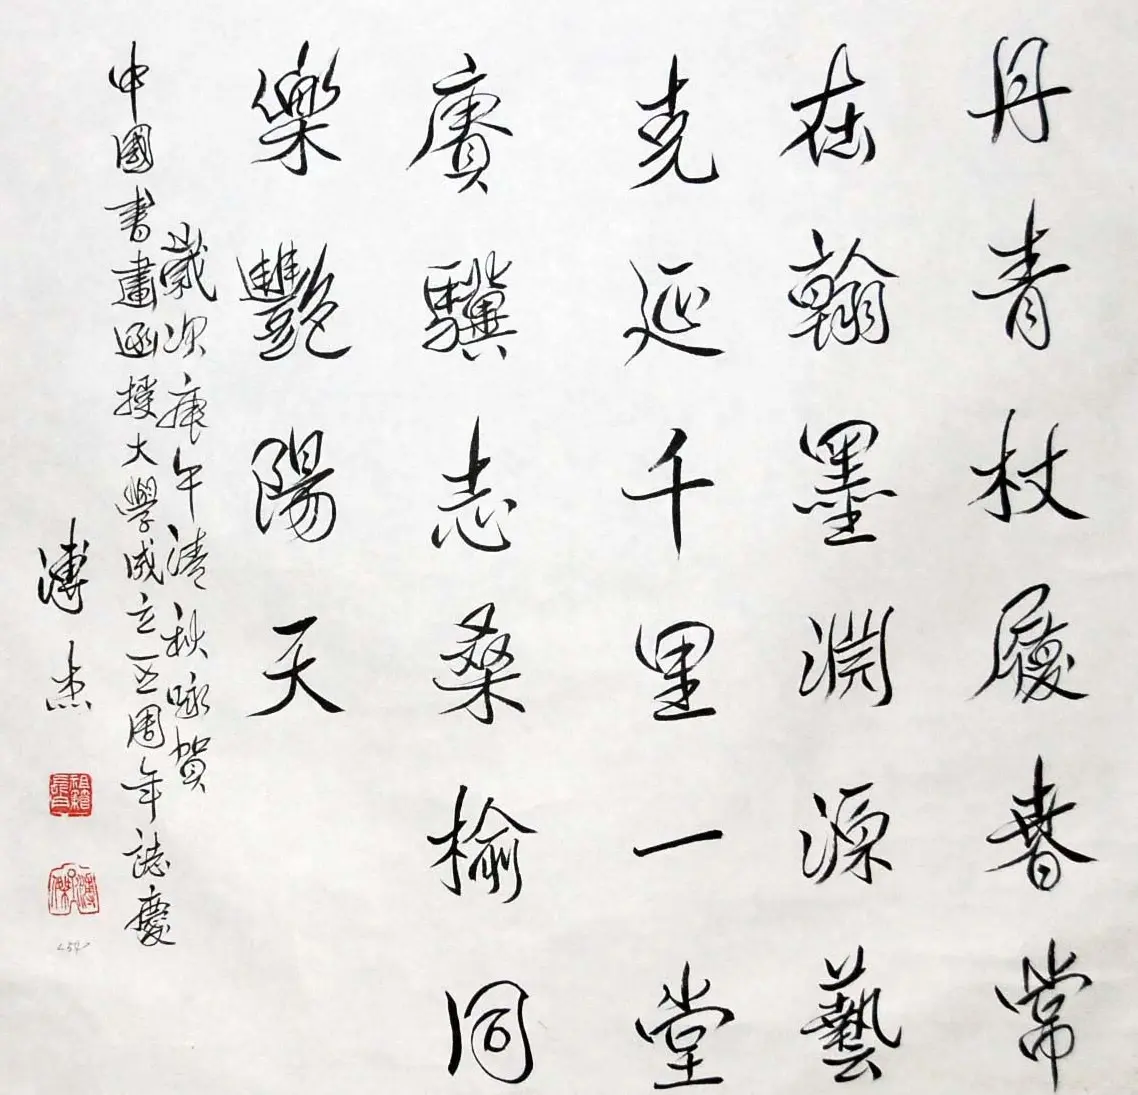 丹青杖履春常
在翰墨淵源藝
克延千里一堂
賡驥志桑榆同
樂艷陽天
歲次庚午清秋詠賀
中國書畫函授大學成立五周年誌慶
溥杰